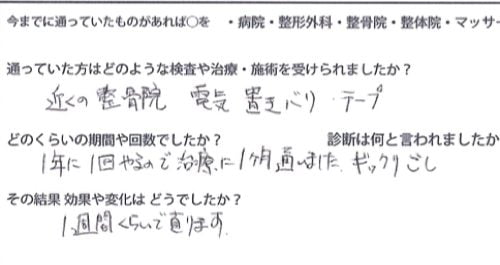 今までに通っていたものがあれば○を ・病院・整形外科・整骨院・整体院・マッサー
通っていた方はどのような検査や治療・施術を受けられましたか？
近くの整骨院 電気 置きバリ テープ
どのくらいの期間や回数でしたか？ 診断は何と言われましたか
1年に1回やるので治療に1ヶ月通いました ギックリごし
その結果 効果や変化は どうでしたか？
1週間くらいで直ります。